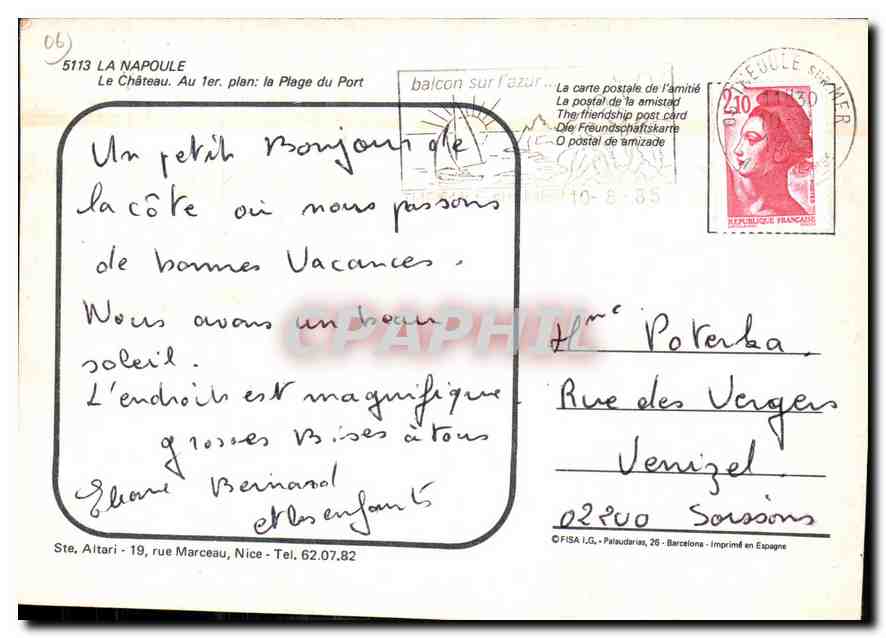 06)
5113 LA NAPOULE
Le Château. Au 1er. plan: la Plage du Port
balcon sur l'azur...
La carte postale de l'amitié
La postal de la amistad
The friendship post card
Die Freundschaftskarte
O postal de amizade
SUR MER
11H30
10-8-85
2,10
REPUBLIQUE FRANÇAISE
Un petit Bonjour de
la côte où nous passons
de bonnes Vacances.
Nous avons un beau
soleil.
L'endroit est magnifique.
grosses Bises à tous
Eliane Bernard
et les enfants
CPAPHIL
Mme Poterka
Rue des Vergers
Venizel
02200 Soissons
Ste. Altari - 19, rue Marceau, Nice - Tel. 62.07.82
© FISA I.G. - Palaudarias, 26 - Barcelona - Imprimé en Espagne